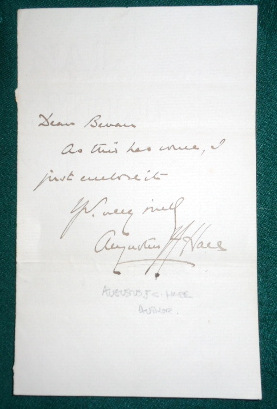 Dear Bevan
As this has come, I
just enclose it
Yr. very sincly
Augustus J C Hare
AUGUSTUS C HARE
AUTHOR.